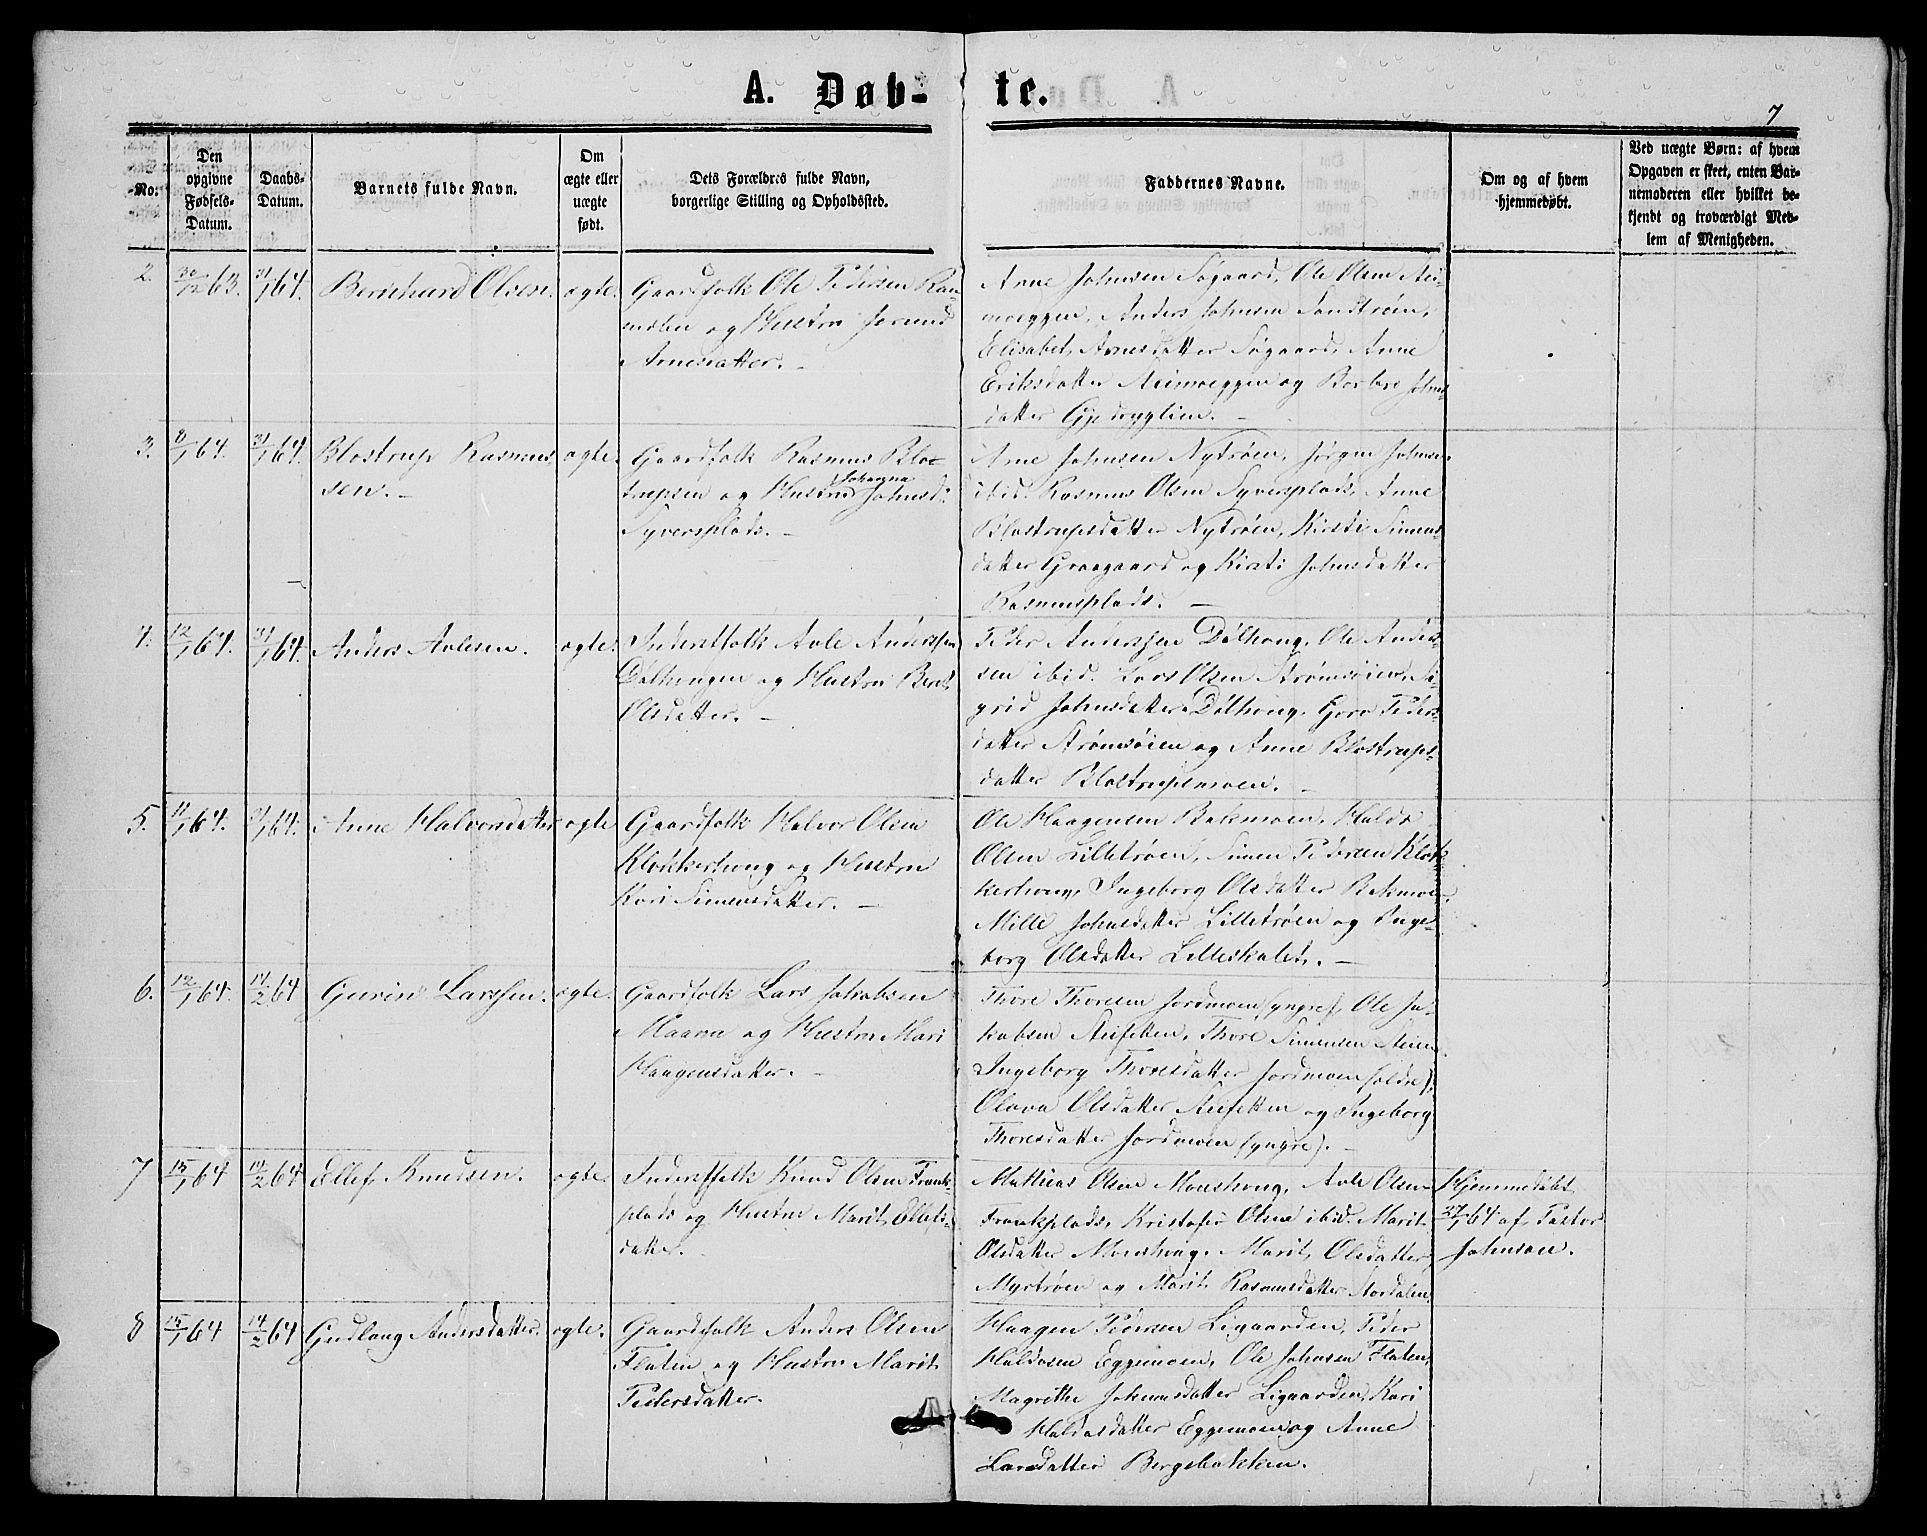 A. Døb-te.
7
No:
Den opgivne Fødsels-Datum.
Daabs-Datum.
Barnets fulde Navn.
Om ægte eller uægte født.
Dets Forældres fulde Navn, borgerlige Stilling og Opholdssted.
Faddernes Navne.
Om og af hvem hjemmedøbt.
Ved uægte Børn: af hvem Opgaven er skeet, enten Barnemoderen eller hvilket bekjendt og troværdigt Medlem af Menigheden.
2. 30/12 63. 31/1 64. Bernhard Olsen. ægte.
Gaardfolk Ole Pedersen Ram-
molen og Hustru Jorund
Arnesdatter. -
Arne Johnsen Søgaard, Ole Olsen
Anders Johnsen Sandtrøen,
Elisabet Arnesdatter Søgaard, Anne
Eriksdatter og Barbro Johns-
datter
3. 8/1 64. 31/1 64. Blostrup Rasmus-
sen. -
ægte.
Gaardfolk Rasmus Blo-
trupsen og Hustru Johanna Johnsd:
Syversplads. -
Arne Johnsen Nytrøen, Jørgen Johnsen
ibid. Rasmus Olsen Syversplads, Anne
Blostrupsdatter Nytrøen, Kirsti Simens-
datter Graagaard og Kirsti Johnsdatter
Rasmusplads. -
4. 12/1 64. 31/1 64. Anders Avlesen. ægte.
Inderstfolk Avle Anderssen
Dølhaugen og Hustru Berit
Olsdatter. -
Peder Anderssen Dølhaug, Ole Anders-
sen ibid. Lars Olsen Strømsøien, Si-
grid Johnsdatter Dølhaug, Goro Peders-
datter Strømsøien og Anne Blostrups-
datter Blostrupsmoen. -
5. 11/1 64. 31/1 64. Anne Halvorsdatter ægte
Gaardfolk Halvor Olsen
Klokkerhaug og Hustru
Kari Simensdatter. -
Ole Haagensen Bakmoen, Haldo
Olsen Lilletrøen, Simen Pedersen Klok-
kerhaug, Ingeborg Olsdatter Bakmoen,
Mille Johnsdatter Lilletrøen og Inge-
borg Olsdatter -
6. 12/1 64. 14/2 64 Larssen. ægte.
Gaardfolk Lars Jakobsen
Maana og Hustru Mari
Haagensdatter. -
Thore Thoresen Jordmoen (yngre), Ole Ja-
kobsen Thore Simensen
Ingeborg Thoresdatter Jordmoen (ældre),
Olava Olsdatter og Ingeborg
Thoresdatter Jordmoen (yngre). -
7 15/1 64 14/2 64 Ellef Knudsen. ægte.
Inderstfolk Knud Olsen Frank-
plads og Hustru Marit Ellefs-
datter.
Mathias Olsen Moushaug, Avle Olsen
Frankplads, Kristofer Olsen ibid. Marit
Olsdatter Moushaug, Marit Olsdatter
Myrtrøen og Marit Rasmusdatter Stordalen.
Hjemmedøbt
27/1 64 af Pastor
Johnsen.
8 15/1 64 14/2 64 Gudlaug Andersdatter. ægte.
Gaardfolk Anders Olsen
Flaten og Hustru Marit
Pedersdatter.
Haagen Pedersen Ligaarden, Peder
Haldosen Eggemoen, Ole Johnsen Flaten,
Magrethe Johannesdatter Ligaarden, Kari
Haldosdatter Eggemoen og Anne
Larsdatter Bergebakken.